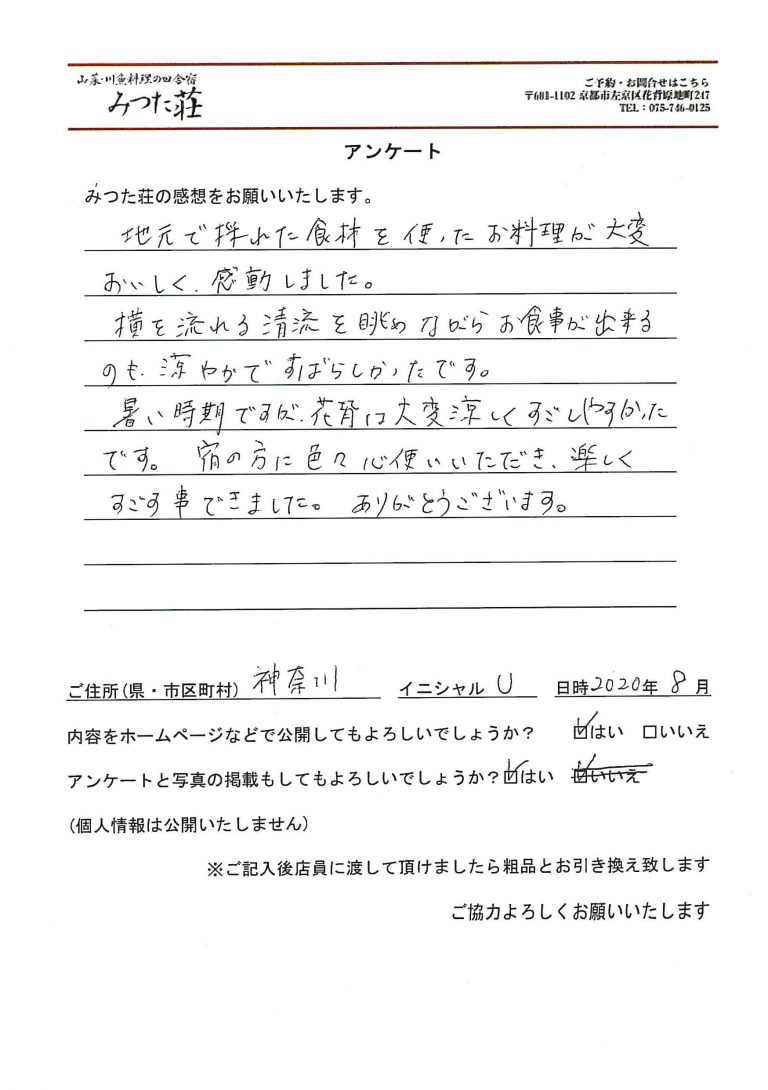 山菜・川魚料理の田舎宿
みつた荘
ご予約・お問合せはこちら
〒601-1102 京都市左京区花背原地町247
TEL：075-746-0125
アンケート
みつた荘の感想をお願いいたします。
地元で採れた食材を使ったお料理が大変
おいしく、感動しました。
横を流れる清流を眺めながらお食事が出来る
のも、涼やかですばらしかったです。
暑い時期ですが、花背は大変涼しくすごしやすかった
です。 宿の方に色々心使いいただき、楽しく
すごす事できました。 ありがとうございます。
ご住所(県・市区町村) 神奈川 イニシャル U 日時2020年 8月
内容をホームページなどで公開してもよろしいでしょうか？ ☑はい □いいえ
アンケートと写真の掲載もしてもよろしいでしょうか？☑はい ☑いいえ
(個人情報は公開いたしません)
※ご記入後店員に渡して頂けましたら粗品とお引き換え致します
ご協力よろしくお願いいたします